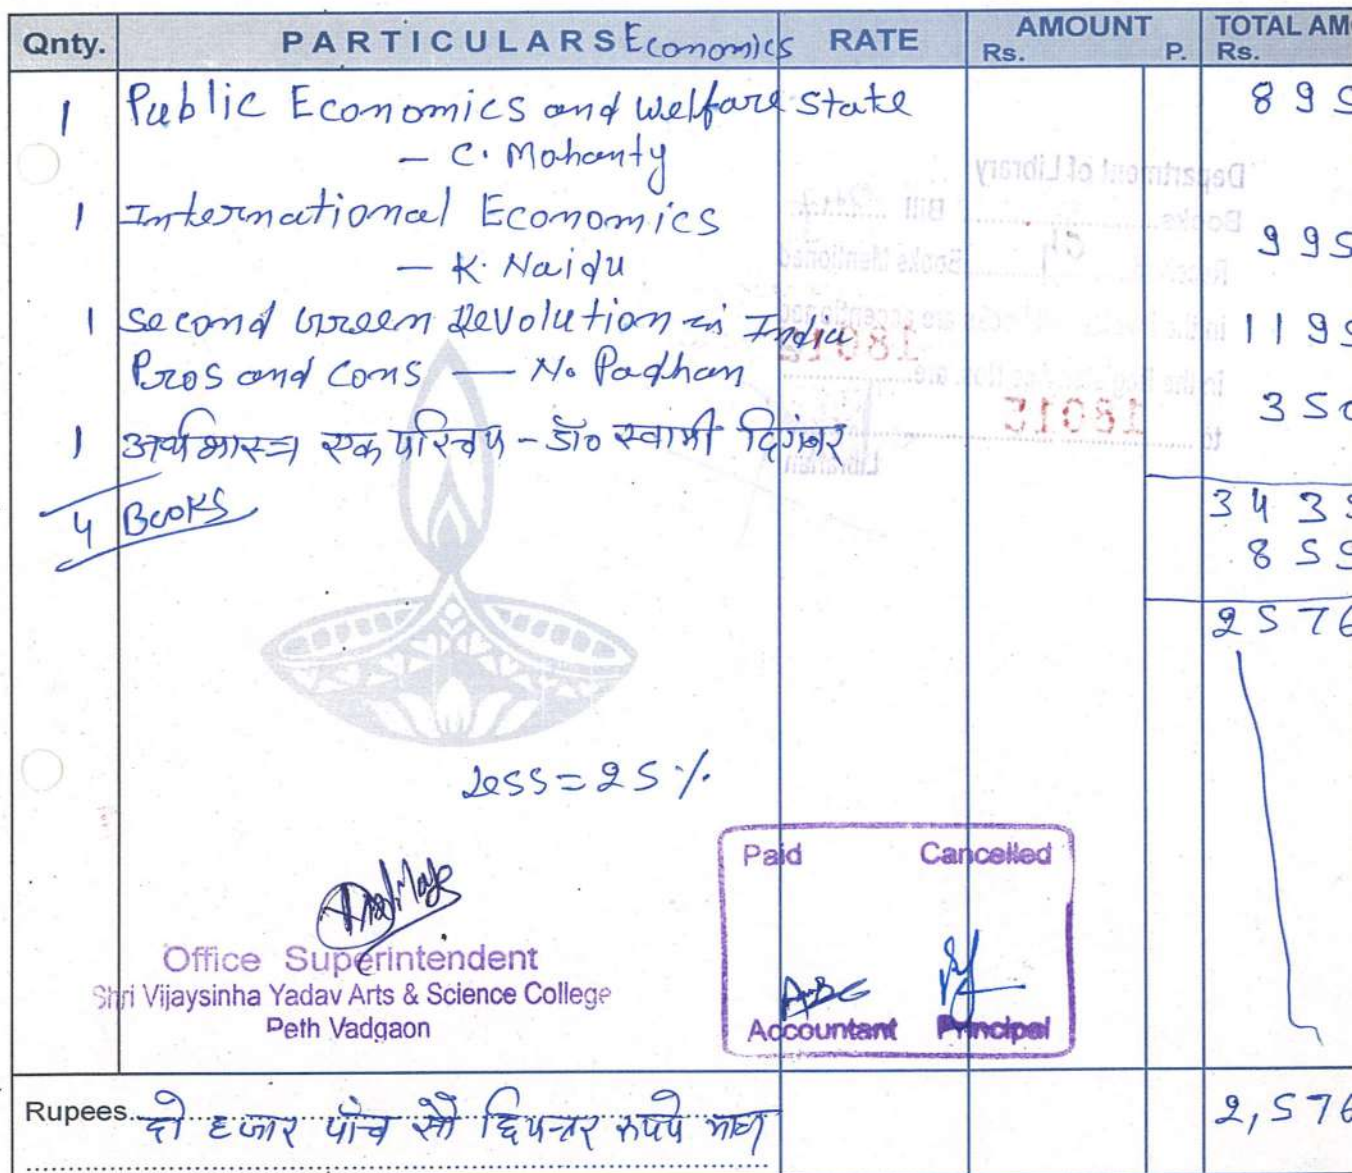 Qnty. PARTICULARS Economics RATE AMOUNT Rs. P. TOTAL AM Rs.
1 Public Economics and welfare state 895
— C. Mohanty
1 International Economics 995
— K. Naidu
1 Second Green Revolution in India 1195
Pros and Cons — N. Padhan 350
1 अर्थशास्त्र एक परिचय - डॉ० स्वामी दिगंबर
4 Books 343
85
2576
Less = 25 %
Paid Cancelled
Office Superintendent
Shri Vijaysinha Yadav Arts & Science College
Peth Vadgaon
Accountant Principal
Rupees दो हजार पाँच सौ रुपये मात्र 2,576